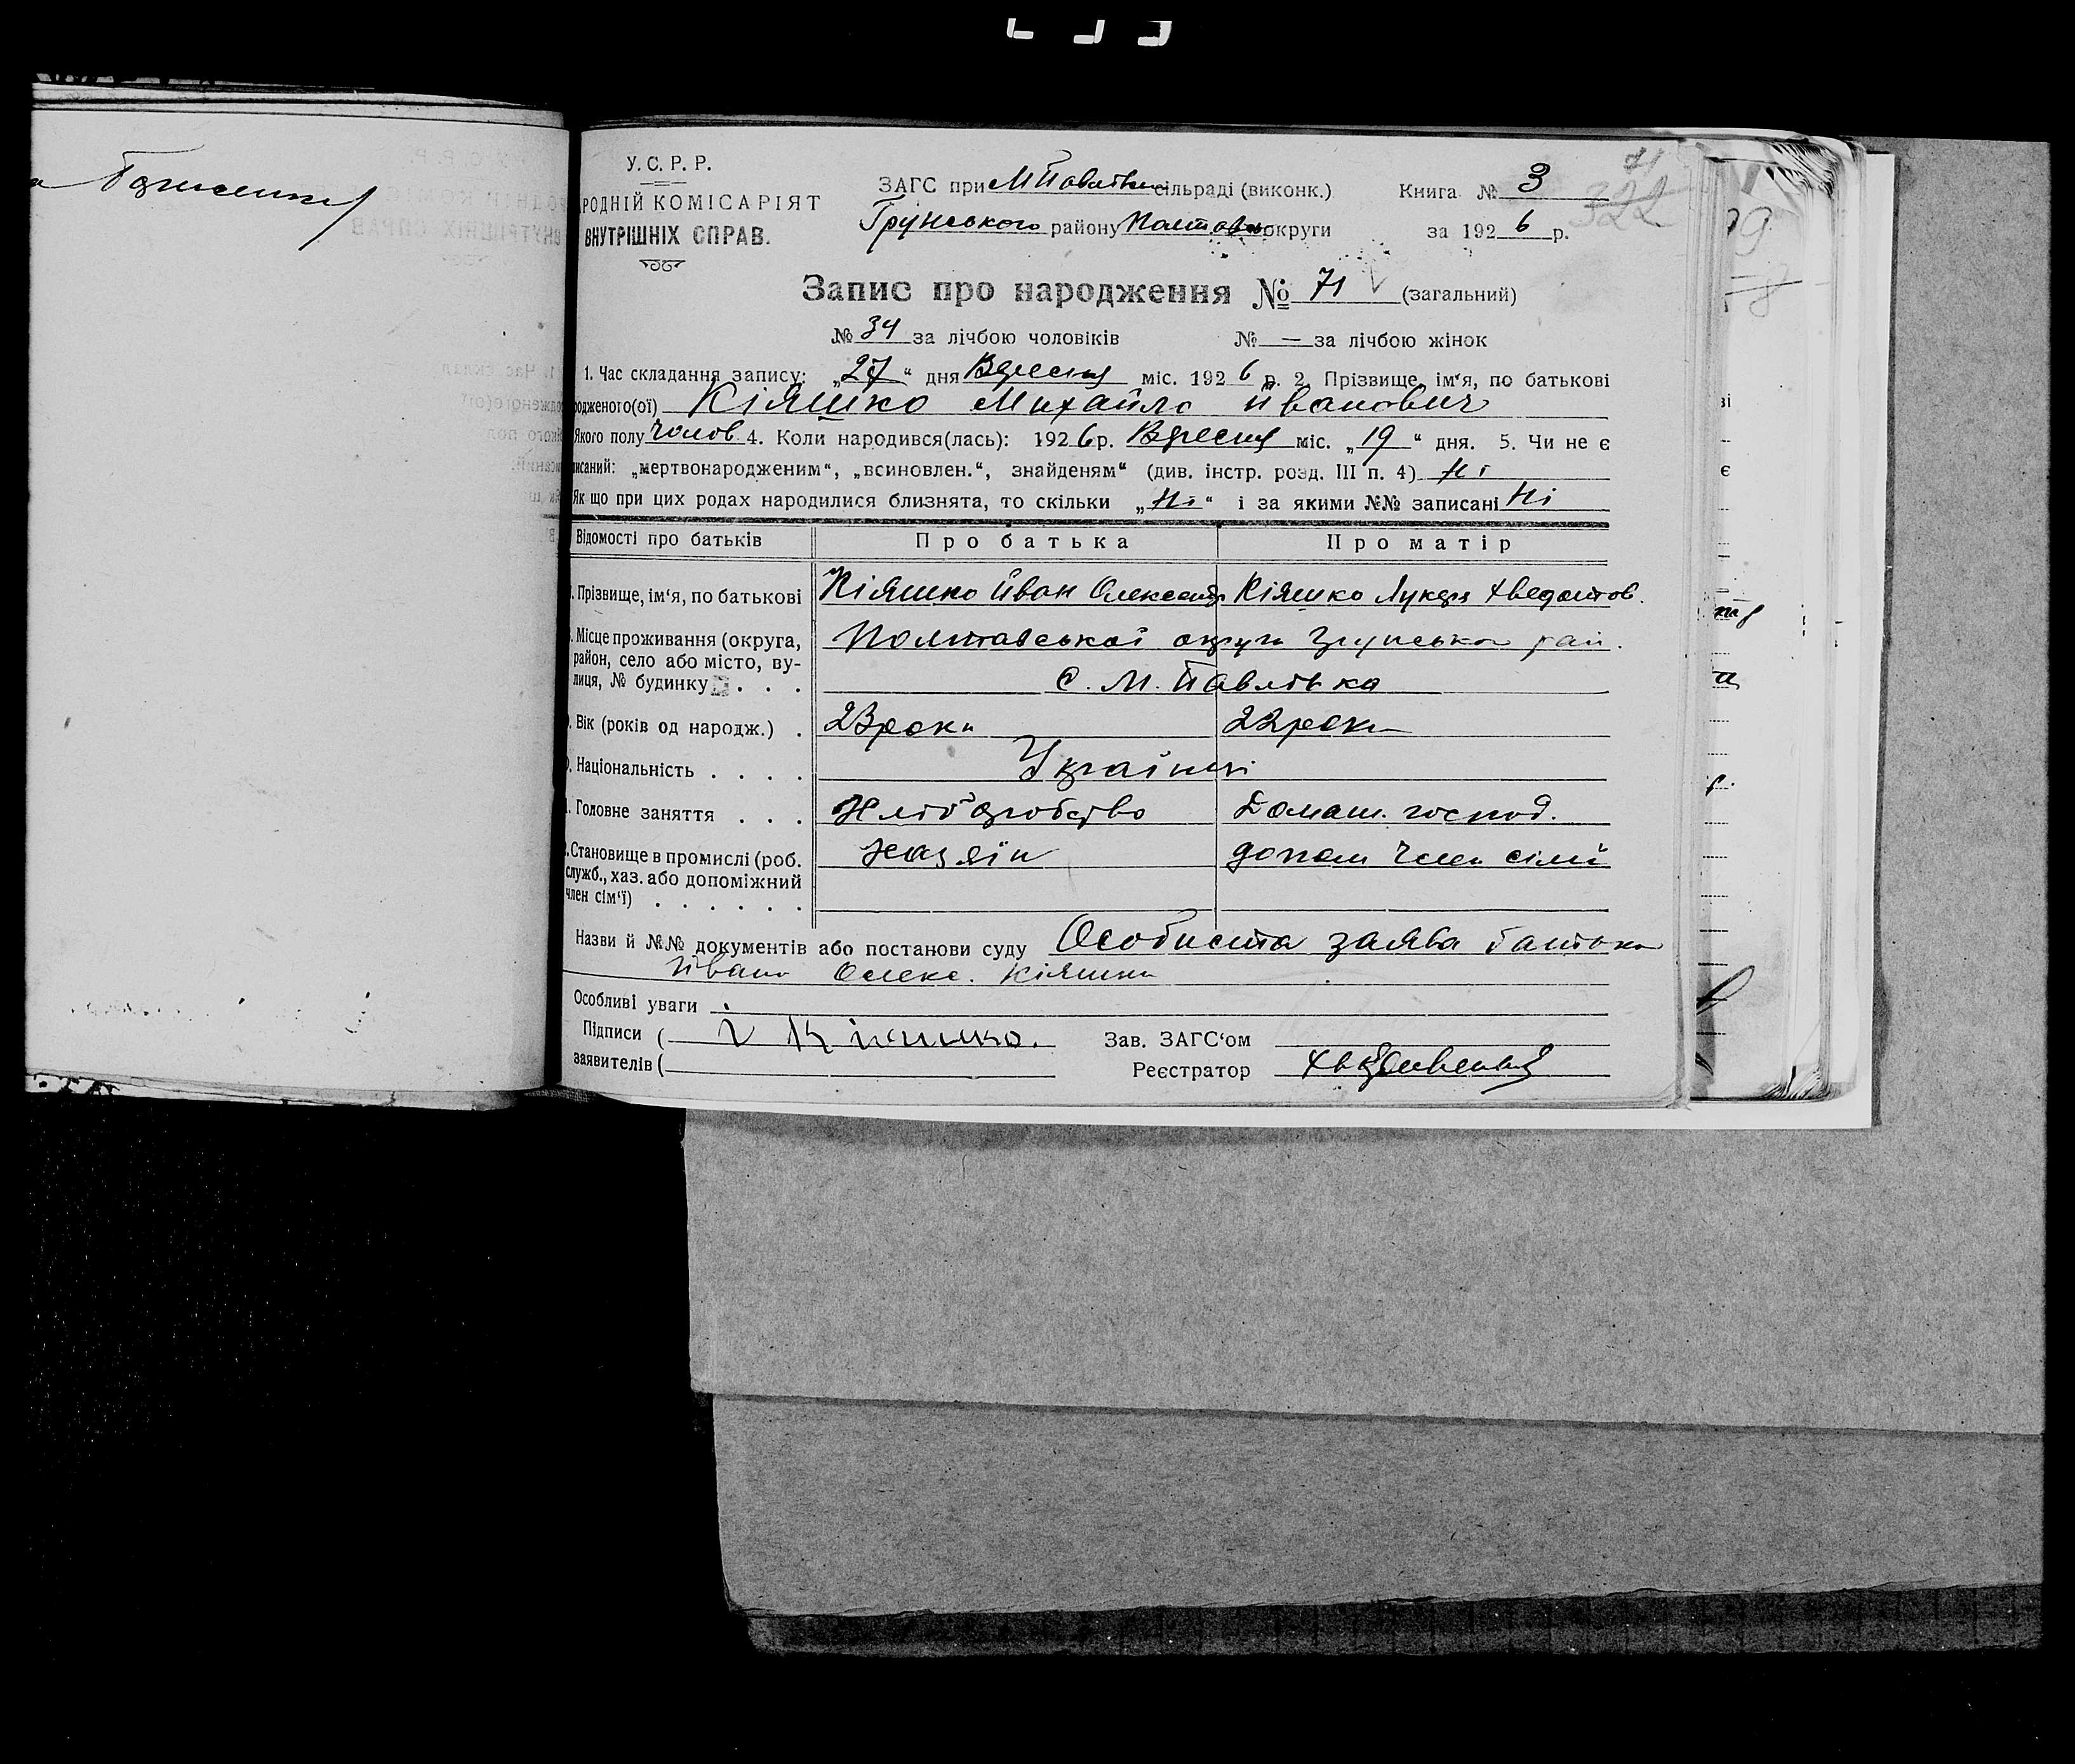 У. С. Р. Р.
РОДНІЙ КОМІСАРІЯТ
ВНУТРІШНІХ СПРАВ.
ЗАГС при М Павлівск сільраді (виконк.)
Грунського району Полтавськ округи
Книга № 3
за 1926 р.
71
322
Запис про народження № 71 (загальний)
№ 34 за лічбою чоловіків № — за лічбою жінок
1. Час складання запису: „27“ дня Вересня міс. 1926 р. 2. Прізвище, ім‘я, по батькові
родженого(ої) Кіяшко Михайло Йванович
Якого полу чолов. 4. Коли народився(лась): 1926 р. Вересня міс. „19“ дня. 5. Чи не є
писаний: „мертвонародженим“, „всиновлен.“, знайденям“ (див. інстр. розд. III п. 4) Ні
Як що при цих родах народилися близнята, то скільки „Ні“ і за якими №№ записані Ні
Відомості про батьків Про батька Про матір
Прізвище, ім‘я, по батькові Кіяшко Йван Олександр Кіяшко Лукеря Хведотов.
Місце проживання (округа, Полтавської округи Грунськ рай.
район, село або місто, ву-
лиця, № будинку . . . С. М. Павлівка
Вік (років од народж.) . 23 роки 22 роки
Національність . . . . Українці
Головне заняття . . . Хліборобство Домаш. господ.
Становище в промислі (роб. Хазяїн допом член сімї
служб., хаз. або допоміжний
член сім‘ї) . . . . . .
Назви й №№ документів або постанови суду Особиста заява батька
Йвана Олекс. Кіяшка
Особливі уваги
Підписи ( І Кіяшко. Зав. ЗАГС‘ом
заявителів ( Реєстратор